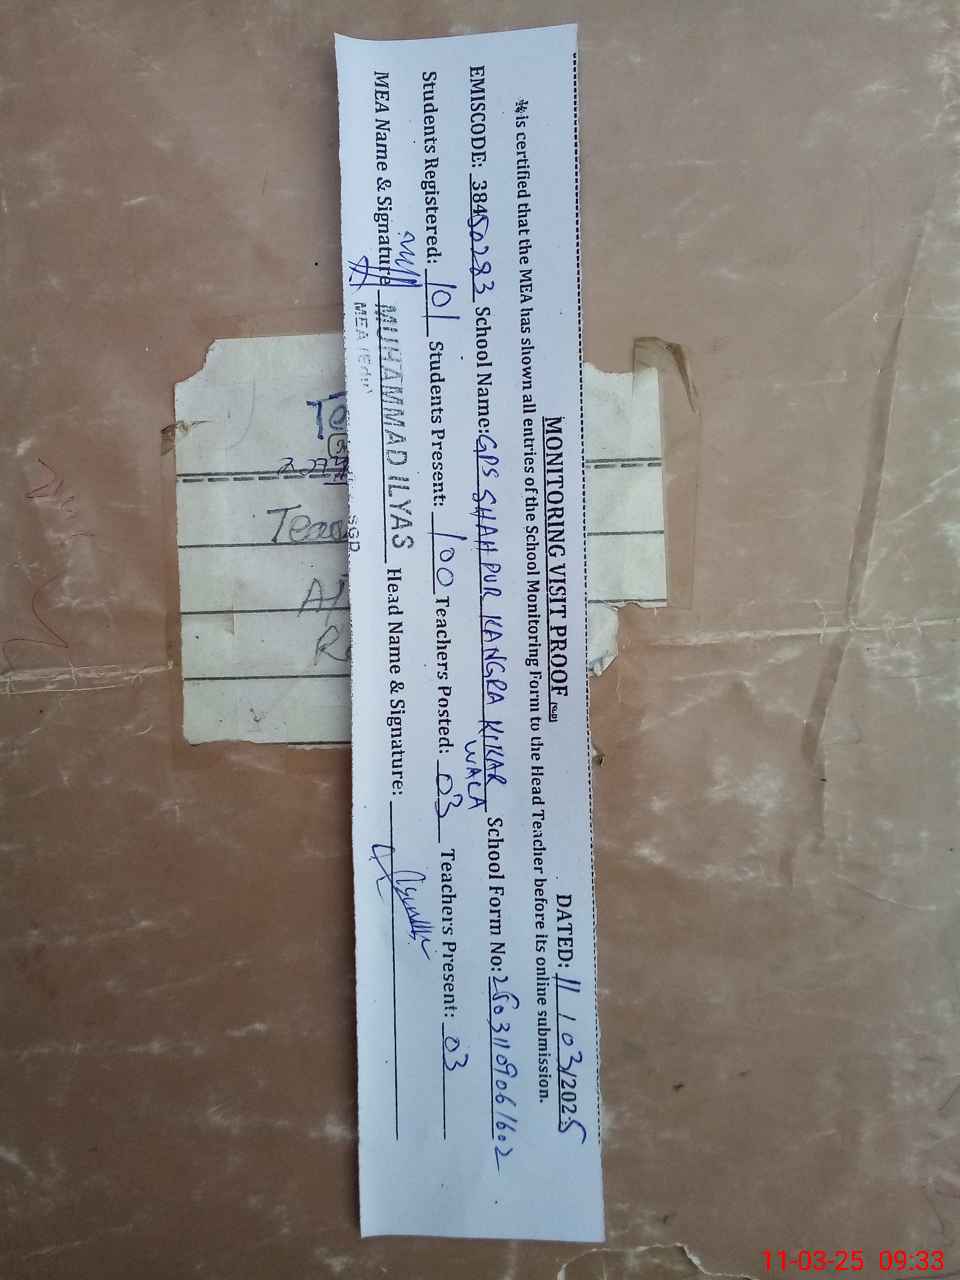 MONITORING VISIT PROOF
DATED: 11/03/2025
is certified that the MEA has shown all entries of the School Monitoring Form to the Head Teacher before its online submission.
EMISCODE: 38450283 School Name: GPS SHAH PUR KANGRA KIKAR WALA School Form No:
Students Registered: 101 Students Present: 100 Teachers Posted: 03 Teachers Present: 03
MEA Name & Signature MUHAMMAD ILYAS Head Name & Signature:
MEA
SGD
11-03-25 09:33